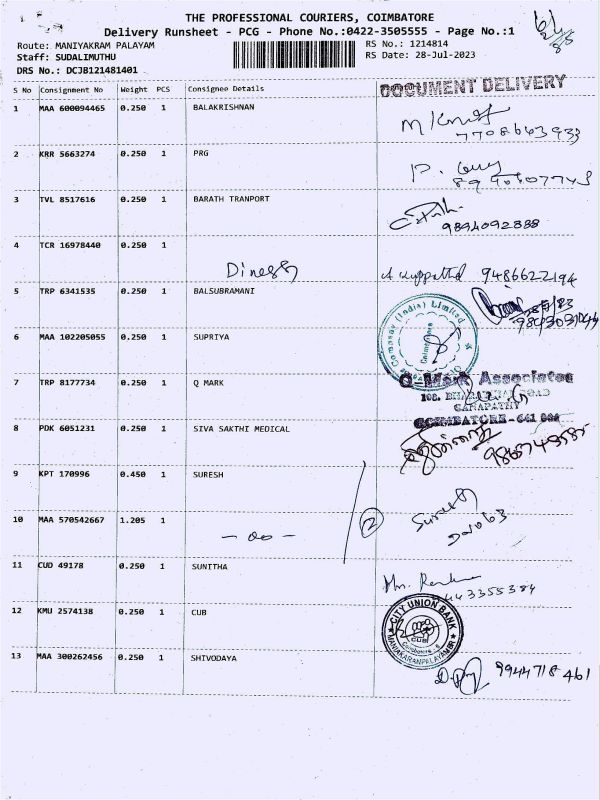 THE PROFESSIONAL COURIERS, COIMBATORE
Delivery Runsheet - PCG - Phone No.:0422-3505555 - Page No.:1
Route: MANIYAKRAM PALAYAM
Staff: SUDALIMUTHU
DRS No.: DCJB121481401
RS No.: 1214814
RS Date: 28-Jul-2023
S No Consignment No Weight PCS Consignee Details
DOCUMENT DELIVERY
1 MAA 600094465 0.250 1 BALAKRISHNAN
7708643933
2 KRR 5663274 0.250 1 PRG
3 TVL 8517616 0.250 1 BARATH TRANPORT
9894092888
4 TCR 16978440 0.250 1
Dinesh
9486622194
5 TRP 6341535 0.250 1 BALSUBRAMANI
6 MAA 102205055 0.250 1 SUPRIYA
(India) Limited
Coimbatore
7 TRP 8177734 0.250 1 Q MARK
Q-Mark Associates
GANAPATHY
COIMBATORE - 641 006
8 PDK 6051231 0.250 1 SIVA SAKTHI MEDICAL
9 KPT 170996 0.450 1 SURESH
Suresh
10 MAA 570542667 1.205 1
- oo -
2
11 CUD 49178 0.250 1 SUNITHA
12 KMU 2574138 0.250 1 CUB
CITY UNION BANK
CUB
13 MAA 300262456 0.250 1 SHIVODAYA
9944718461